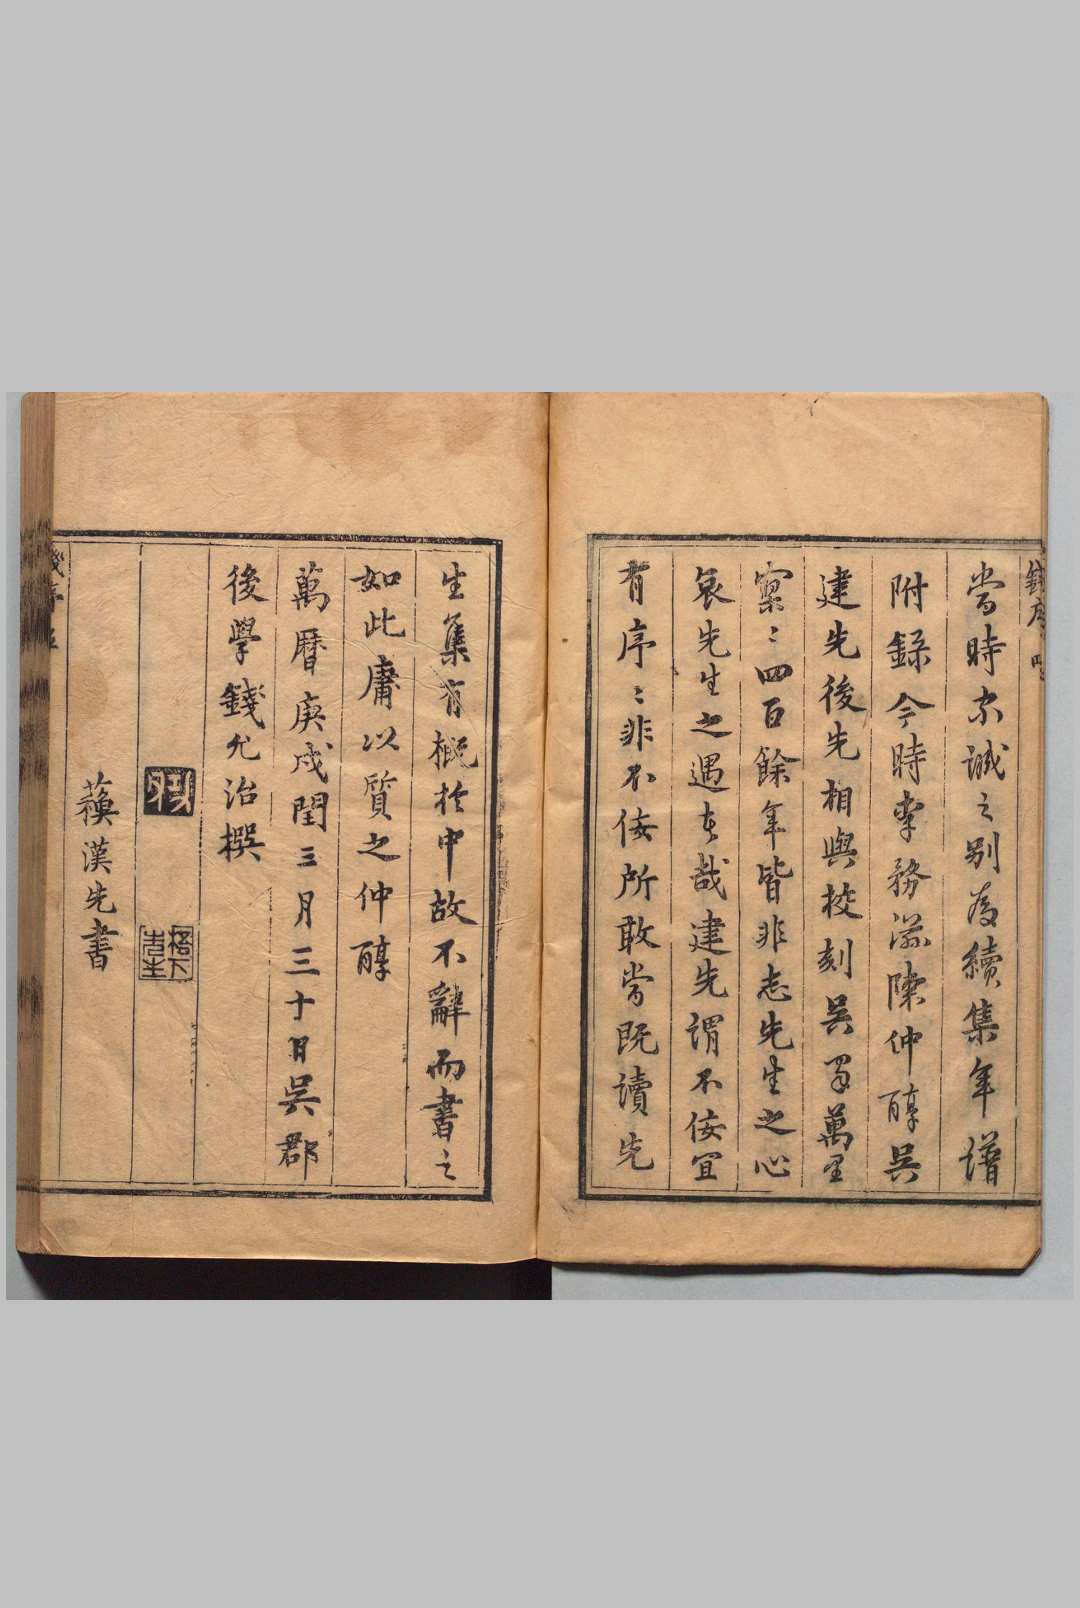 錢序 四
當時宗誠之別為續集年譜
附錄今時李務滋陳仲醇吳
建先後先相與校刻吳蜀萬里
寥〻四百餘年皆非志先生之心
哀先生之遇者哉建先謂不佞宜
有序〻非不佞所敢當既讀先
生集有概於中故不辭而書之
如此庸以質之仲醇
萬曆庚戌閏三月三十日吳郡
後學錢允治撰
蘋漢先書